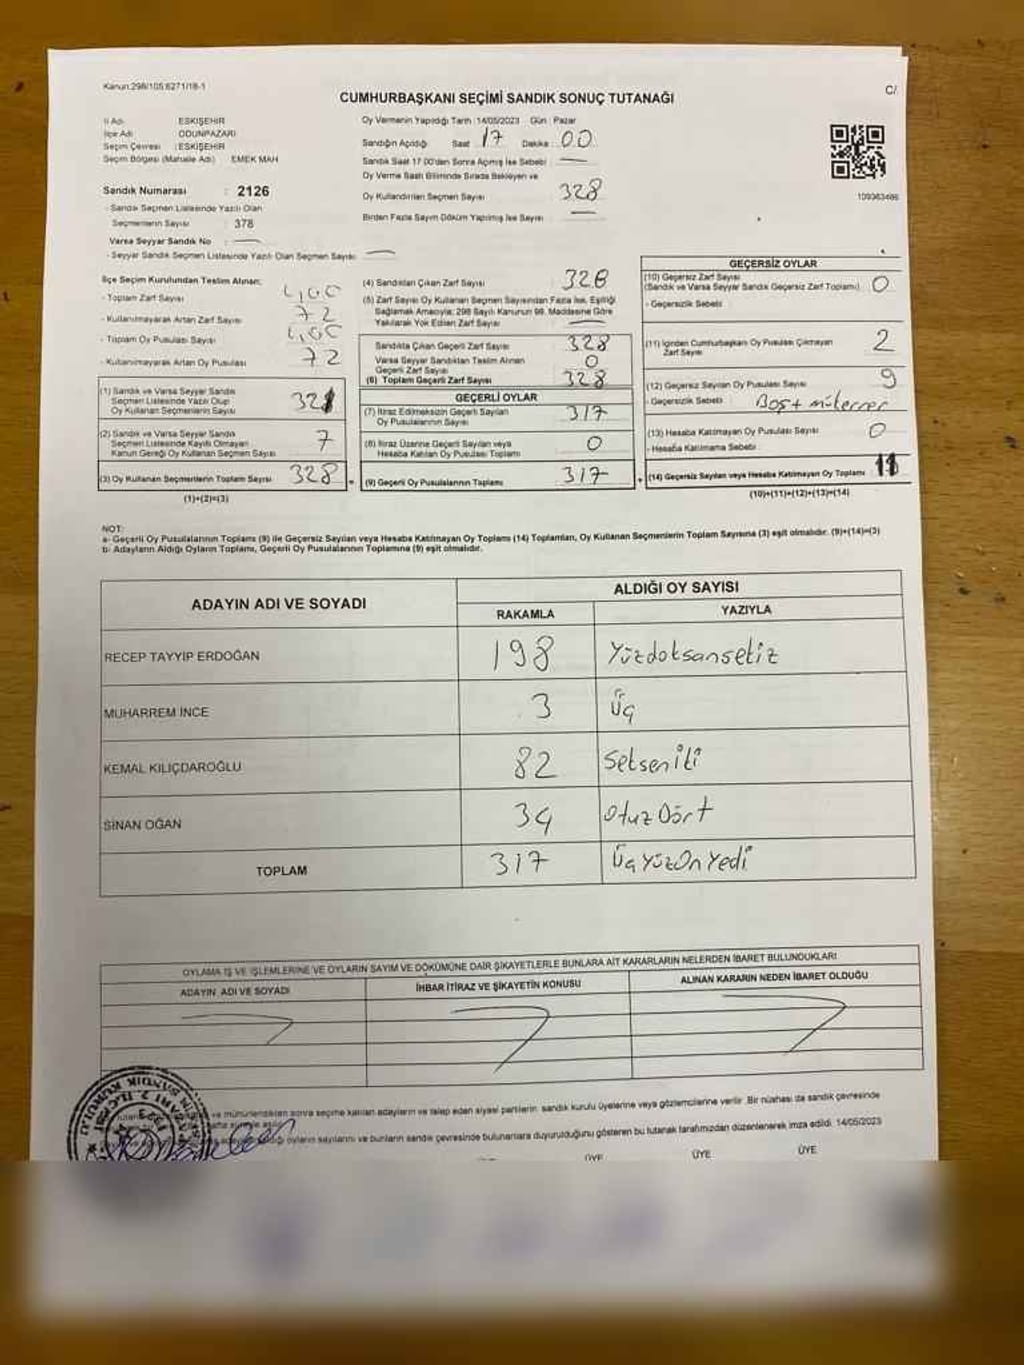 Kanun:298/105:6271/18-1
C/
CUMHURBAŞKANI SEÇİMİ SANDIK SONUÇ TUTANAĞI
İl Adı : ESKİŞEHİR
İlçe Adı : ODUNPAZARI
Seçim Çevresi : ESKİŞEHİR
Seçim Bölgesi (Mahalle Adı) EMEK MAH
Sandık Numarası : 2126
- Sandık Seçmen Listesinde Yazılı Olan
Seçmenlerin Sayısı : 378
Varsa Seyyar Sandık No : —
- Seyyar Sandık Seçmen Listesinde Yazılı Olan Seçmen Sayısı : —
Oy Vermenin Yapıldığı Tarih : 14/05/2023 Gün : Pazar
Sandığın Açıldığı Saat : 17 Dakika : 00
Sandık Saat 17 00'dan Sonra Açılmış İse Sebebi : —
Oy Verme Saati Bitiminde Sırada Bekleyen ve
Oy Kullandırılan Seçmen Sayısı : 328
Birden Fazla Sayım Döküm Yapılmış İse Sayısı : —
109363486
İlçe Seçim Kurulundan Teslim Alınan;
- Toplam Zarf Sayısı
- Kullanılmayarak Artan Zarf Sayısı 72
- Toplam Oy Pusulası Sayısı
- Kullanılmayarak Artan Oy Pusulası 72
(1) Sandık ve Varsa Seyyar Sandık
Seçmen Listesinde Yazılı Olup
Oy Kullanan Seçmenlerin Sayısı 321
(2) Sandık ve Varsa Seyyar Sandık
Seçmen Listesinde Kayıtlı Olmayan
Kanun Gereği Oy Kullanan Seçmen Sayısı 7
(3) Oy Kullanan Seçmenlerin Toplam Sayısı 328
(1)+(2)=(3)
(4) Sandıktan Çıkan Zarf Sayısı 328
(5) Zarf Sayısı Oy Kullanan Seçmen Sayısından Fazla İse, Eşitliği
Sağlamak Amacıyla; 298 Sayılı Kanunun 98. Maddesine Göre
Yakılarak Yok Edilen Zarf Sayısı —
Sandıkta Çıkan Geçerli Zarf Sayısı 328
Varsa Seyyar Sandıktan Teslim Alınan
Geçerli Zarf Sayısı 0
(6) Toplam Geçerli Zarf Sayısı 328
GEÇERLİ OYLAR
(7) İtiraz Edilmeksizin Geçerli Sayılan
Oy Pusulalarının Sayısı 317
(8) İtiraz Üzerine Geçerli Sayılan veya
Hesaba Katılan Oy Pusulası Toplamı 0
(9) Geçerli Oy Pusulalarının Toplamı 317
GEÇERSİZ OYLAR
(10) Geçersiz Zarf Sayısı
(Sandık ve Varsa Seyyar Sandık Geçersiz Zarf Toplamı) 0
- Geçersizlik Sebebi :
(11) İçinden Cumhurbaşkanı Oy Pusulası Çıkmayan
Zarf Sayısı 2
(12) Geçersiz Sayılan Oy Pusulası Sayısı 9
- Geçersizlik Sebebi : Boş+ mükerrer
(13) Hesaba Katılmayan Oy Pusulası Sayısı 0
- Hesaba Katılmama Sebebi :
(14) Geçersiz Sayılan veya Hesaba Katılmayan Oy Toplamı 11
(10)+(11)+(12)+(13)=(14)
NOT:
a- Geçerli Oy Pusulalarının Toplamı (9) ile Geçersiz Sayılan veya Hesaba Katılmayan Oy Toplamı (14) Toplamları, Oy Kullanan Seçmenlerin Toplam Sayısına (3) eşit olmalıdır. (9)+(14)=(3)
b- Adayların Aldığı Oyların Toplamı, Geçerli Oy Pusulalarının Toplamına (9) eşit olmalıdır.
ADAYIN ADI VE SOYADI
ALDIĞI OY SAYISI
RAKAMLA YAZIYLA
RECEP TAYYİP ERDOĞAN 198 Yüzdoksansekiz
MUHARREM İNCE 3 Üç
KEMAL KILIÇDAROĞLU 82 Seksen iki
SİNAN OĞAN 34 Otuz Dört
TOPLAM 317 Üç Yüz On Yedi
OYLAMA İŞ VE İŞLEMLERİNE VE OYLARIN SAYIM VE DÖKÜMÜNE DAİR ŞİKAYETLERLE BUNLARA AİT KARARLARIN NELERDEN İBARET BULUNDUKLARI
ADAYIN ADI VE SOYADI İHBAR İTİRAZ VE ŞİKAYETİN KONUSU ALINAN KARARIN NEDEN İBARET OLDUĞU
ve mühürlendikten sonra seçime katılan adayların ve talep eden siyasi partilerin sandık kurulu üyelerine veya gözlemcilerine verilir. Bir nüshası da sandık çevresinde
oyların sayılarını ve bunların sandık çevresinde bulunanlara duyurulduğunu gösteren bu tutanak tarafımızdan düzenlenerek imza edildi. 14/05/2023
ÜYE ÜYE ÜYE